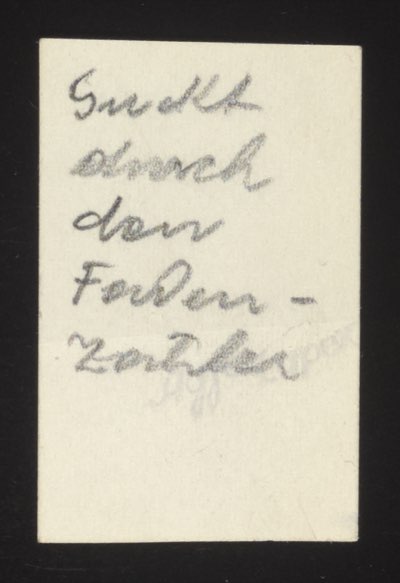 Guckt
durch
den
Faden-
zähler